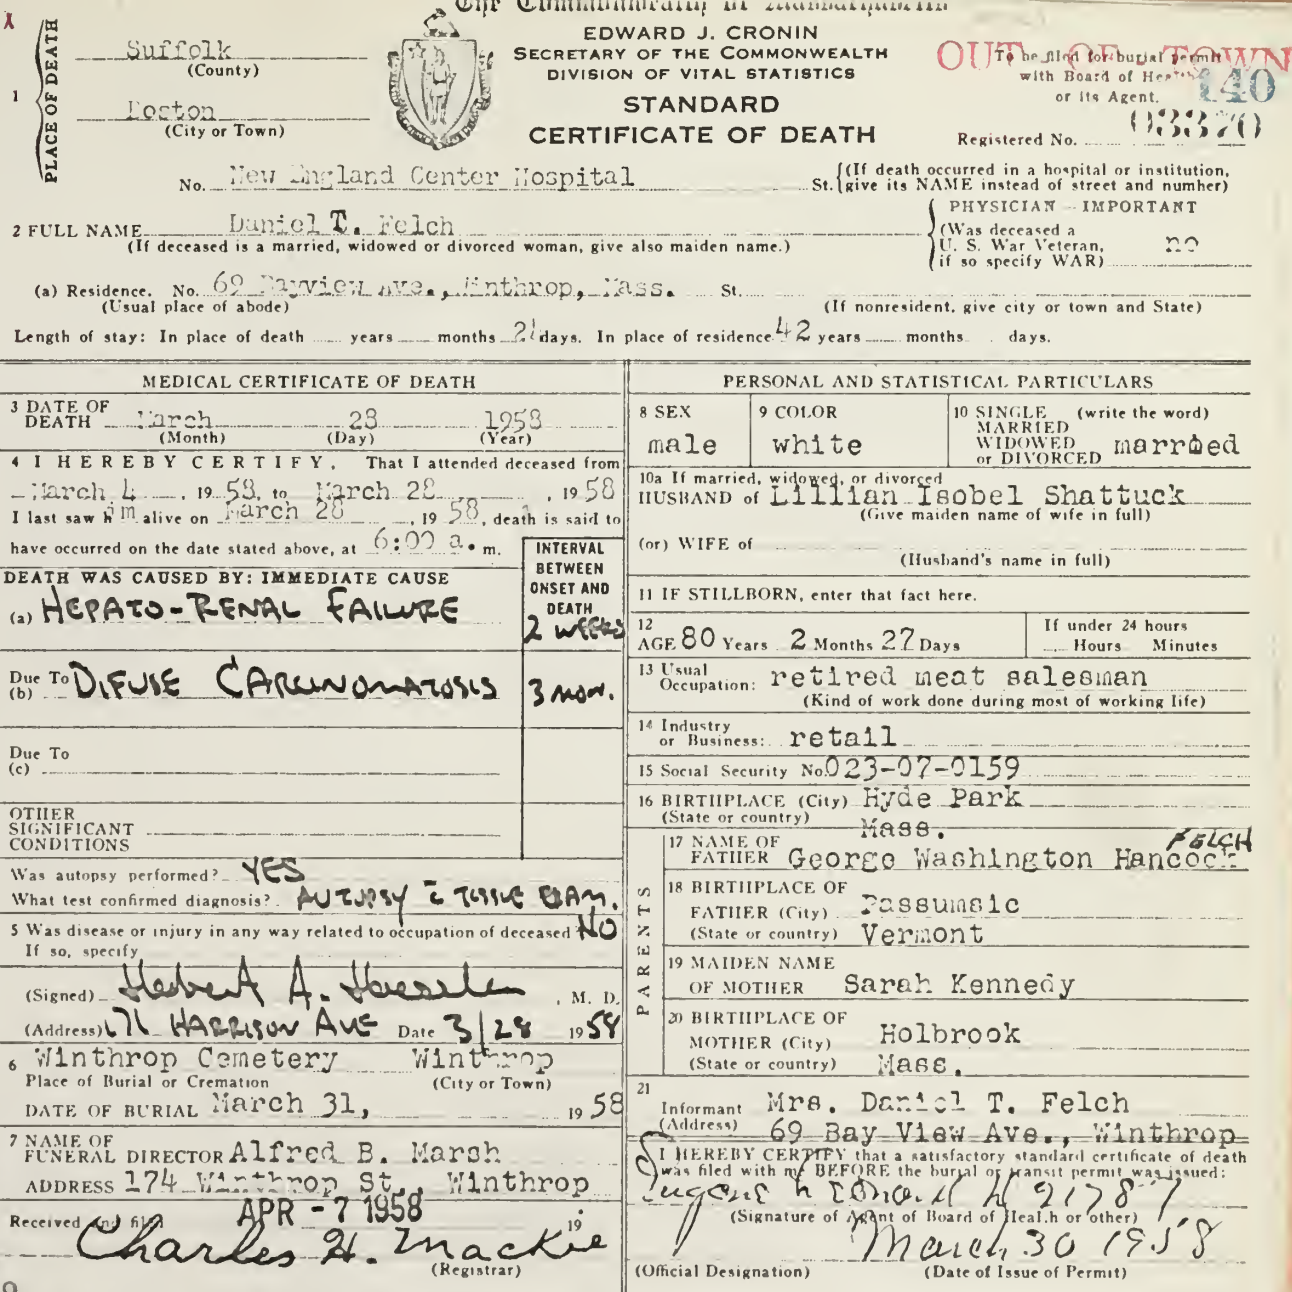 EDWARD J. CRONIN
SECRETARY OF THE COMMONWEALTH
DIVISION OF VITAL STATISTICS
STANDARD
CERTIFICATE OF DEATH
OUT OF TOWN
To be filed for burial permit
with Board of Health
or its Agent.
140
Registered No. 03370
X
1
PLACE OF DEATH
Suffolk
(County)
Boston
(City or Town)
No. New England Center Hospital St. (If death occurred in a hospital or institution,
give its NAME instead of street and number)
2 FULL NAME Daniel T. Felch
(If deceased is a married, widowed or divorced woman, give also maiden name.)
PHYSICIAN - IMPORTANT
(Was deceased a
U. S. War Veteran,
if so specify WAR) no
(a) Residence. No. 69 Bayview Ave., Winthrop, Mass. St.
(Usual place of abode) (If nonresident, give city or town and State)
Length of stay: In place of death years months 21 days. In place of residence 42 years months days.
MEDICAL CERTIFICATE OF DEATH
3 DATE OF
DEATH March 28 1958
(Month) (Day) (Year)
4 I HEREBY CERTIFY, That I attended deceased from
March 4, 1958, to March 28, 1958
I last saw him alive on March 28, 1958, death is said to
have occurred on the date stated above, at 6:00 a.m.
INTERVAL
BETWEEN
ONSET AND
DEATH
DEATH WAS CAUSED BY: IMMEDIATE CAUSE
(a) HEPATO-RENAL FAILURE 2 WEEKS
Due To
(b) DIFUSE CARCINOMATOSIS 3 mon.
Due To
(c)
OTHER
SIGNIFICANT
CONDITIONS
Was autopsy performed? YES
What test confirmed diagnosis? AUTOPSY c̄ TISSUE EXAM.
5 Was disease or injury in any way related to occupation of deceased NO
If so, specify
(Signed) Herbert A. , M. D.
(Address) 171 HARRISON AVE Date 3/28 1958
6 Winthrop Cemetery Winthrop
Place of Burial or Cremation (City or Town)
DATE OF BURIAL March 31, 1958
7 NAME OF
FUNERAL DIRECTOR Alfred B. Marsh
ADDRESS 174 Winthrop St., Winthrop
Received and filed APR -7 1958 19
Charles H. Mackie
(Registrar)
PERSONAL AND STATISTICAL PARTICULARS
8 SEX
male
9 COLOR
white
10 SINGLE (write the word)
MARRIED
WIDOWED
or DIVORCED married
10a If married, widowed, or divorced
HUSBAND of Lillian Isobel Shattuck
(Give maiden name of wife in full)
(or) WIFE of
(Husband's name in full)
11 IF STILLBORN, enter that fact here.
12
AGE 80 Years 2 Months 27 Days
If under 24 hours
Hours Minutes
13 Usual
Occupation: retired meat salesman
(Kind of work done during most of working life)
14 Industry
or Business: retail
15 Social Security No. 023-07-0159
16 BIRTHPLACE (City) Hyde Park
(State or country) Mass.
PARENTS
17 NAME OF
FATHER George Washington Hancock FELCH
18 BIRTHPLACE OF
FATHER (City) Passumsic
(State or country) Vermont
19 MAIDEN NAME
OF MOTHER Sarah Kennedy
20 BIRTHPLACE OF
MOTHER (City) Holbrook
(State or country) Mass.
21
Informant Mrs. Daniel T. Felch
(Address) 69 Bay View Ave., Winthrop
I HEREBY CERTIFY that a satisfactory standard certificate of death
was filed with me BEFORE the burial or transit permit was issued:
(Signature of Agent of Board of Health or other)
March 30 1958
(Official Designation) (Date of Issue of Permit)